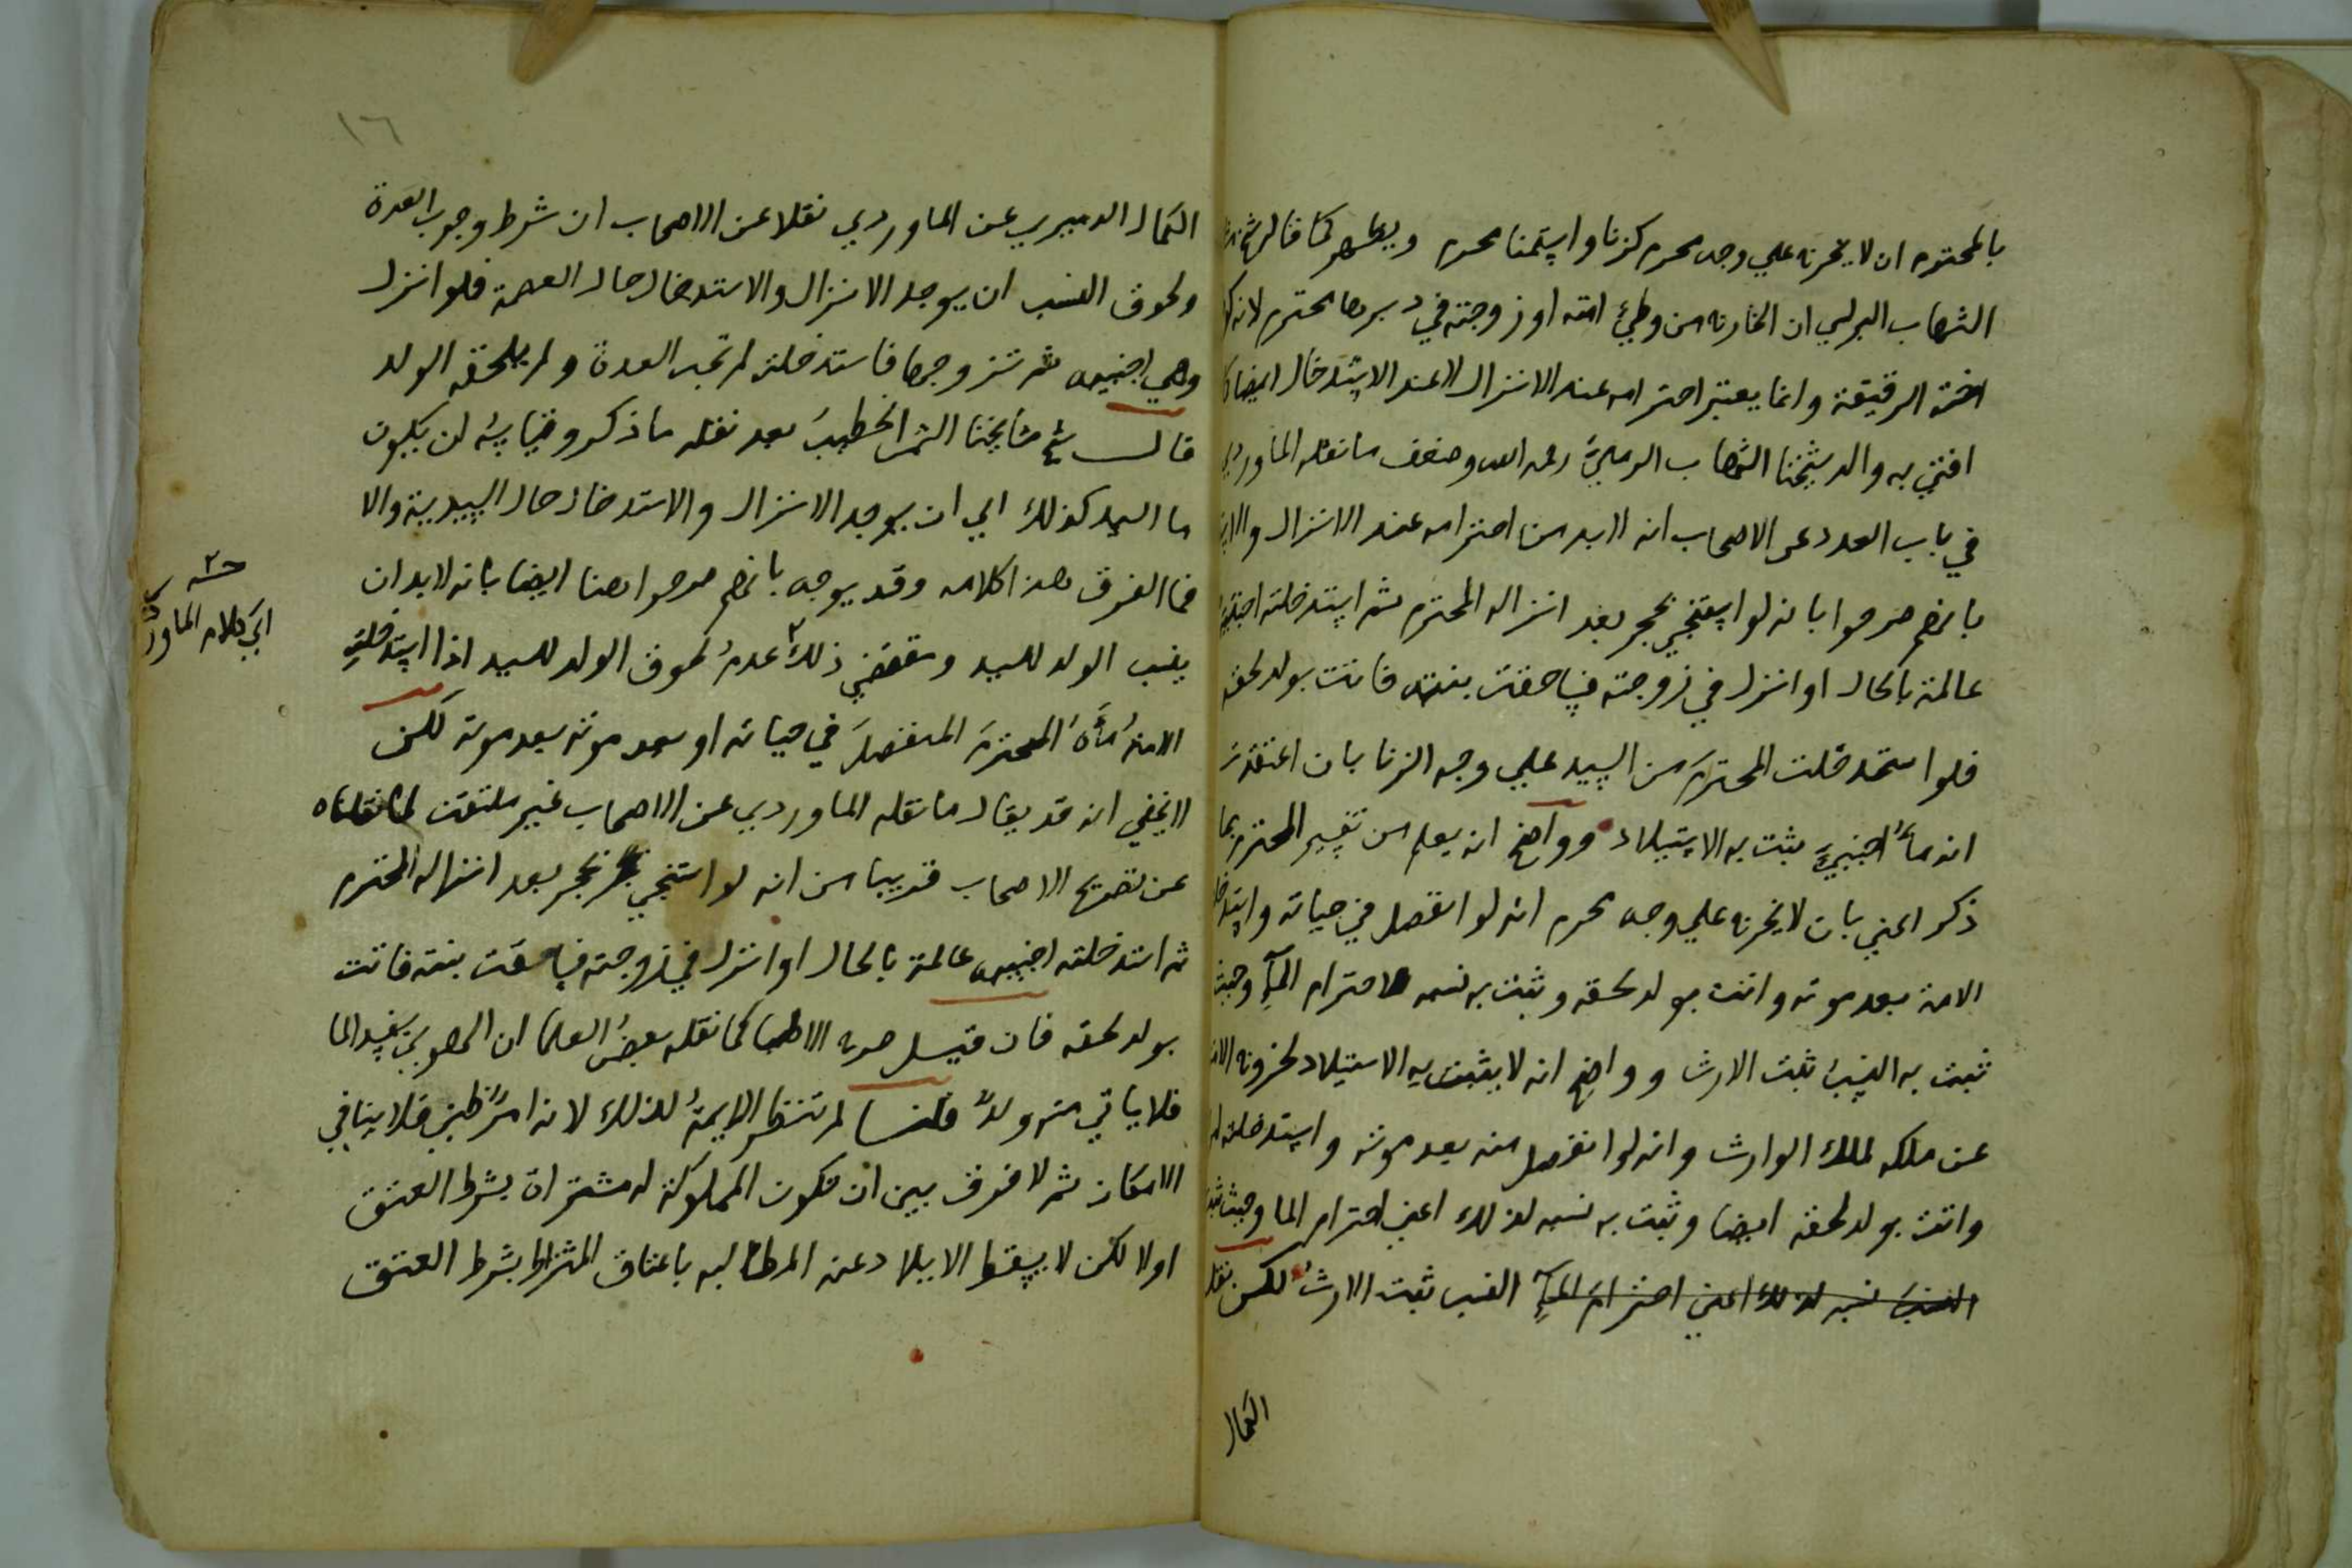 بالمحترم ان لا يخرج علي وجه محرم كزنا واستمنا محرم ويظهر كما قال شيخ
الشهاب البرلسي ان الخارج من وطئ امته او زوجته في دبرها محترم لانه
اخته الرقيقة وانما يعتبر احترامه عند الانزال لا عند الاستدخال ايضا
افتي به والد شيخنا الشهاب الرملي رحمه الله وضعف ما نقله الماوردي
في باب العدد عن الاصحاب انه لابد من احترامه عند الانزال
بانهم صرحوا بانه لو استنجي بحجر بعد انزاله المحترم ثم استدخلته اجنبية
عالمة بالحال او انزل في زوجته فساحقت بنته فاتت بولد لحقه
فلو استدخلت المحترم من السيد علي وجه الزنا بان اعتقدت
انه ماء اجنبي يثبت به الاستيلاد وواضح انه يعلم من تفسير المحترم بما
ذكر اعني بان لا يخرج علي وجه محرم انه لو انفصل في حياته
الامة بعد موته واتت بولد لحقه وثبت به نسبه لاحترام المآء وحيث
ثبت به النسب ثبت الارث وواضح انه لا يثبت به الاستيلاد لخروج
عن ملكه لملك الوارث وانه لو انفصل منه بعد موته واستدخلته
واتت بولد لحقه ايضا وثبت به نسبه لذلك اعني احترام الما وحيث ثبت
النسب نسبه لذلك اعني احترام المآء النسب ثبت الارث لكن نقل
الكمال
١٦
الكمال الدميري عن الماوردي نقلا عن الاصحاب ان شرط وجوب العدة
ولحوق النسب ان يوجد الانزال والاستدخال حال العصمة فلو انزل
وهي اجنبيه ثم تزوجها فاستدخلته لم تجب العدة ولم يلحقه الولد
قال شيخ مشايخنا الشمس الخطيب بعد نقله ما ذكر وقياسه ان يكون
ما السيد كذلك اي ان يوجد الانزال والاستدخال حال السيدية والا
فما الفرق هذا كلامه وقد يوجه بانهم صرحوا هنا ايضا بانه لابد ان
ينسب الولد للسيد ومقتضي ذلك عدم لحوق الولد للسيد اذا استدخلت
الامة ماءه المحترم المنفصل في حياته او بعد موته بعد موته لكن
لا يخفي انه قد يقال ما نقله الماوردي عن الاصحاب غير ملتفت لما نقلناه
عن تصريح الاصحاب قريبا من انه لو استنجي بحجر بعد انزاله المحترم
ثم استدخلته اجنبيه عالمة بالحال او انزل في زوجته فساحقت بنته فاتت
بولد لحقه فان قيل صرح الاطبا كما نقله بعض العلما ان الهوي يفسد الما
فلا ياتي منه ولد قلنا لم تنظر الايمة لذلك لانه امر ظني فلا ينافي
الامكان ثم لا فرق بين ان تكون المملوكة له مشتراة بشرط العتق
اولا لكن لا يسقط الايلاد عنه المطالبه باعتاق المشتراة بشرط العتق
حشـ
اي كلام الماوردي